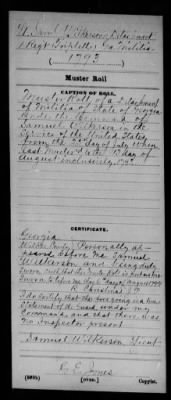 Lt. Saml. Wilkerson's Detachment
1 Regt Ga Militia
1793
Muster Roll
CAPTION OF ROLL.
Muster Roll of a Detachment
of Militia of State of Georgia
Under the Command of
Samuel Wilkerson in the
Service of the United States
from the day of July when
last Mustered to the 13 day of
August inclusively, 1793
CERTIFICATE.
Georgia
Wilkes County Personally ap-
peared before me Samuel
Wilkerson and being duly
Sworn saith that the Muster Roll is
Sworn to before me this day of August 1794
J.P.
I do Certify that the foregoing is a true
Statement of the Guard under my
Command and that there was
no Inspector present
Samuel Wilkerson Lieut
C. E. Jones
Copyist.